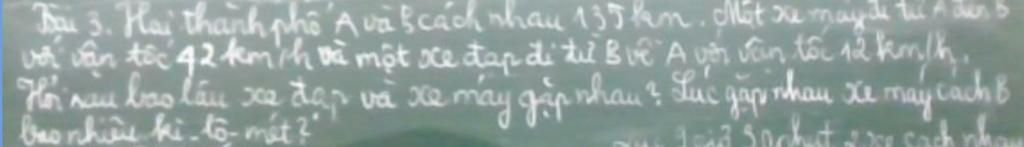 Bài 3. Hai thành phố A và B cách nhau 135 km. Một xe máy đi từ A đến B
với vận tốc 42 km/h và một xe đạp đi từ B về A với vận tốc 12 km/h.
Hỏi sau bao lâu xe đạp và xe máy gặp nhau? Lúc gặp nhau xe máy cách B
bao nhiêu ki-lô-mét?
giờ 30 phút 2 xe cách nhau